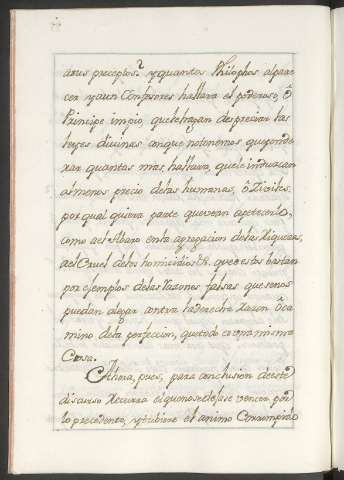 arus preceptos? y quantos Philophos al pare
cer y aun Confesores hallara el poderoso, ô
Principe impio, que le traygan despreciar las
leyes divinas, aunque notenemos que ponde
rar quantas mas hallara, que le induzcan
al menos precio delas humanas, ô Ziviles
por qual quiera parte que veran apetecerle,
como ael Abaro en la agregacion delas Riquezas,
a el Cruel delos homicidios &. que estos bastan
por ejemplos delas Razones falsas que senos
puedan alegar contra la derecha razon ô Ca
mino dela perfeccion, que todo es una misma
Cosa.
Ahora, pues, para conclusion de este
discurso recurra el que no se dejase vencer por
lo precedente, y tubiere el animo Corrompido